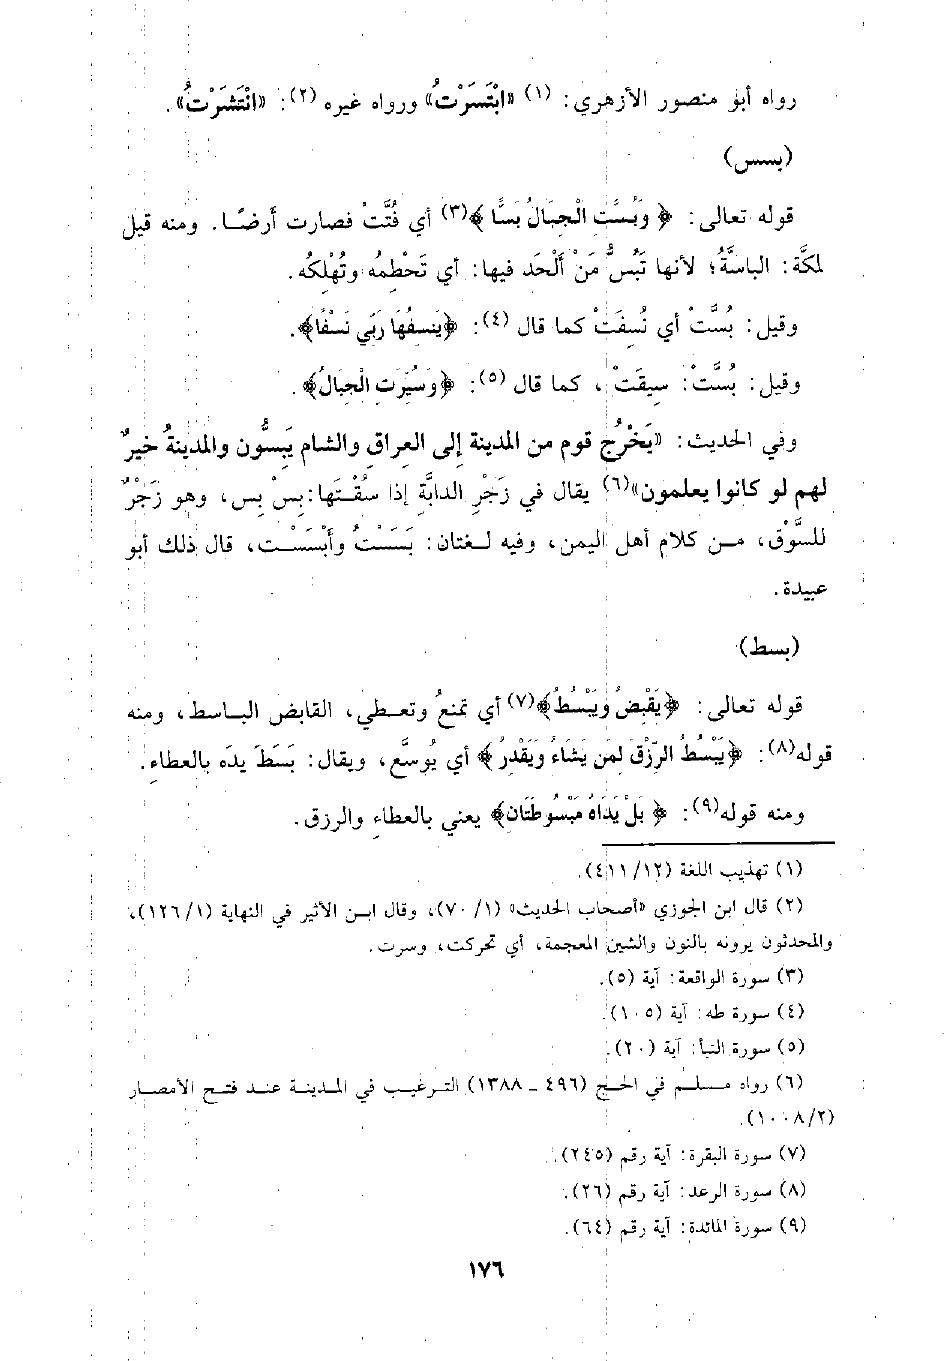 رواه أبو منصور الأزهري: (١) «ابْتَسَرْتُ» ورواه غيره (٢): «انْتَشَرْتُ».
(بسس)
قوله تعالى: ﴿ وَبُسَّت الْجبَالُ بَسًّا ﴾(٣) أي فُتَّتْ فصارت أرضًـا. ومنه قيل
لمكَّة: الباسَّةُ؛ لأنها تَبُسُّ مَنْ أَلْحَد فيها: أي تَحْطِمُه وتُهْلِكُه.
وقيل: بُسَّتْ أي نُسِفَتْ كما قال (٤): ﴿يَنسِفُهَا رَبِّي نَسْفًا﴾.
وقيل: بُسَّتْ: سيقَتْ، كما قال (٥): ﴿وَسُيِّرَتِ الْجبَالُ﴾.
وفي الحديث: «يَخْرُج قوم من المدينة إلى العراقِ والشام يَبِسُّون والمدينةُ خيرٌ
لهم لو كانوا يعلمون»(٦) يقال في زَجْرِ الدابَّةِ إذا سُقْـتَها:بِسْ بِس، وهو زَجْرٌ
للسَّوْقِ، مـن كلام أهل اليمن، وفيه لـغتان: بَسَسْتُ وأَبْسَسْـت، قال ذلك أبو
عبيدة.
(بسط)
قوله تعالى: ﴿يَقْبِضُ وَيَبْسُطُ﴾(٧) أي تمنعُ وتعـطي، القابض البـاسط، ومنه
قوله(٨): ﴿يَبْسُطُ الرِّزْقَ لِمَن يَشَاءُ وَيَقْدِرُ ﴾ أي يُوسِّع، ويقال: بَسَطَ يدَه بالعطاءِ.
ومنه قوله(٩): ﴿ بَلْ يَدَاهُ مَبْسُوطَتَانِ﴾ يعني بالعطاءِ والرزق.
(١) تهذيب اللغة (١٢/ ٤١١).
(٢) قال ابن الجوزي «أصحاب الحديث» (١/ ٧٠)، وقال ابـن الأثير في النهاية (١/ ١٢٦)،
والمحدثون يرونه بالنون والشين المعجمة، أي تحركت، وسرت.
(٣) سورة الواقعة: آية (٥).
(٤) سورة طه: آية (١٠٥).
(٥) سورة النبأ: آية (٢٠).
(٦) رواه مـسلـم في الحج (٤٩٦ ـ ١٣٨٨) التـرغيـب في المدينـة عنـد فتـح الأمصـار
(٢/ ١٠٠٨).
(٧) سورة البقرة: آية رقم (٢٤٥).
(٨) سورة الرعد: آية رقم (٢٦).
(٩) سورة المائدة: آية رقم (٦٤).
١٧٦